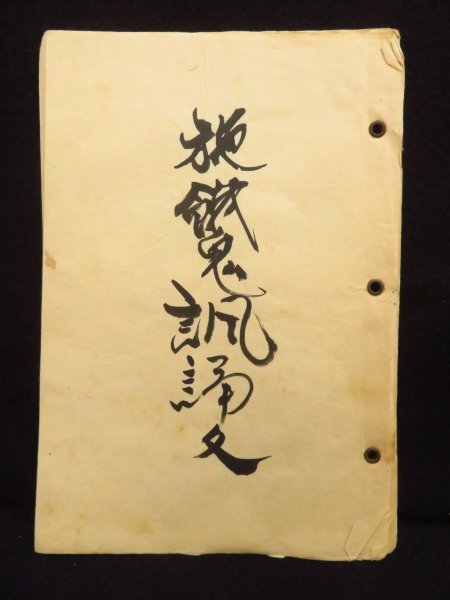 施餓鬼諷誦文